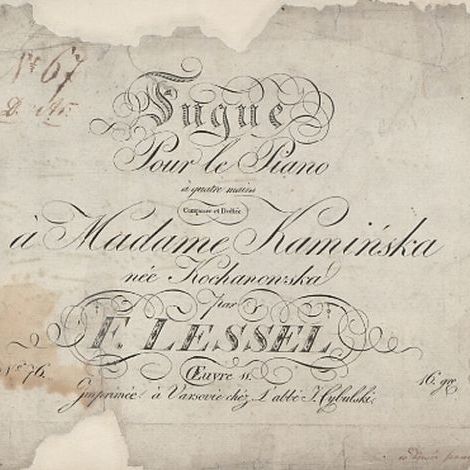 Nº 67
Fugue
Pour le Piano
à quatre mains
Composée et Dediée
à Madame Kamińska
née Kochanowska
par
F. LESSEL
Œuvre 11.
Nº 76.
16. gr
Imprimée à Varsovie chéz L'abbé J. Cybulski.